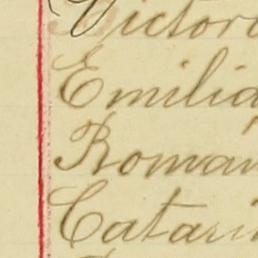 Victor
Emilia
Roman
Catari